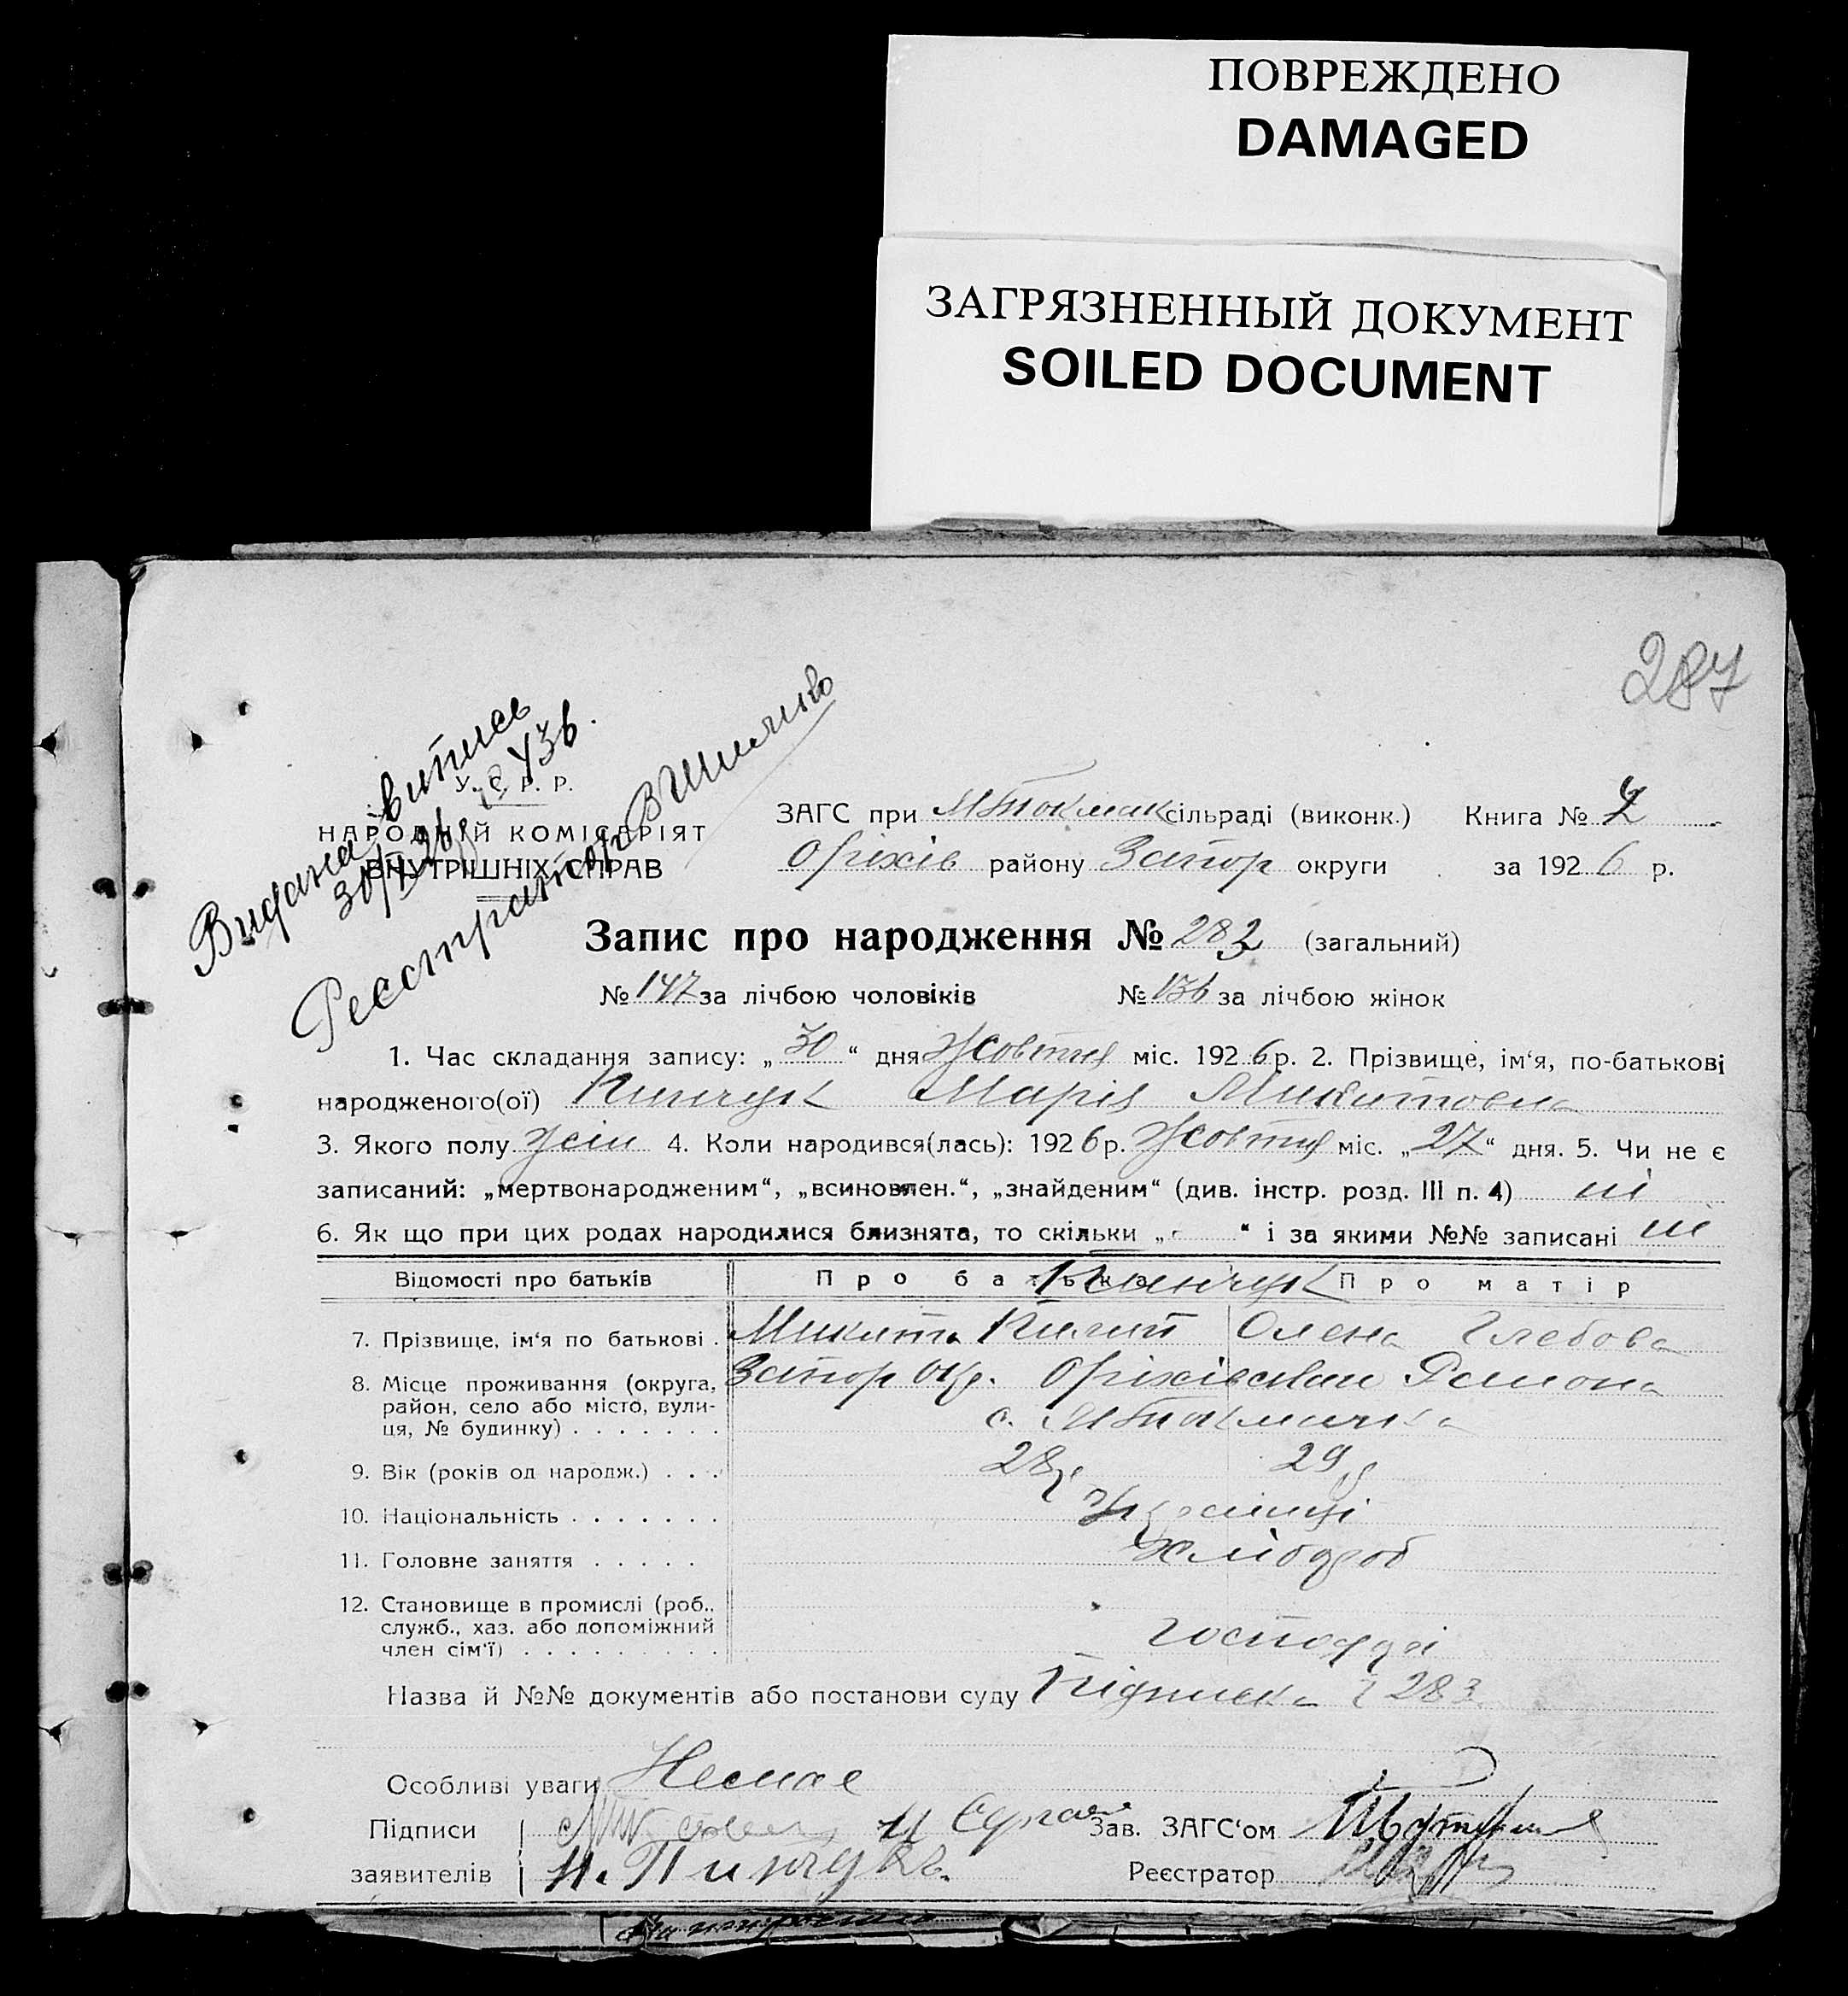 ПОВРЕЖДЕНО
DAMAGED
ЗАГРЯЗНЕННЫЙ ДОКУМЕНТ
SOILED DOCUMENT
287
Видана витпись
30/X 26 р.
Реєстратор
У. С. Р. Р.
НАРОДНІЙ КОМІСАРІЯТ
ВНУТРІШНІХ СПРАВ
ЗАГС при МТокмак сільраді (виконк.) Книга № 2
Оріхів району Запор округи за 1926 р.
Запис про народження № 283 (загальний)
№ 147 за лічбою чоловіків № 136 за лічбою жінок
1. Час складання запису: „30“ дня Жовтня міс. 1926 р. 2. Прізвище, ім‘я, по-батькові
народженого(ої) Пинчук Марія Микитовна
3. Якого полу жін 4. Коли народився(лась): 1926 р. Жовтня міс. „27“ дня. 5. Чи не є
записаний: „мертвонародженим“, „всиновлен.“, „знайденим“ (див. інстр. розд. III п. 4) ні
6. Як що при цих родах народилися близнята, то скільки „ “ і за якими №№ записані ні
Відомості про батьків Про батька Пинчук Про матір
7. Прізвище, ім‘я по батькові . Микита Пилип Олена Глебова
8. Місце проживання (округа, Запор окр. Оріхівськаи Району
район, село або місто, вули- с. МТокмачка
ця, № будинку) . . . . . . .
9. Вік (років од народж.) . . . 28 р 29 р
10. Національність . . . . . . . Українці
11. Головне заняття . . . . . Хлібороб
12. Становище в промислі (роб.,
служб., хаз. або допоміжний господарі
член сім‘ї) . . . . . . . . .
Назва й №№ документів або постанови суду Підписка 283
Особливі уваги Немає
Підписи Зав. ЗАГС‘ом
заявителів Н. Пинчукъ. Реєстратор